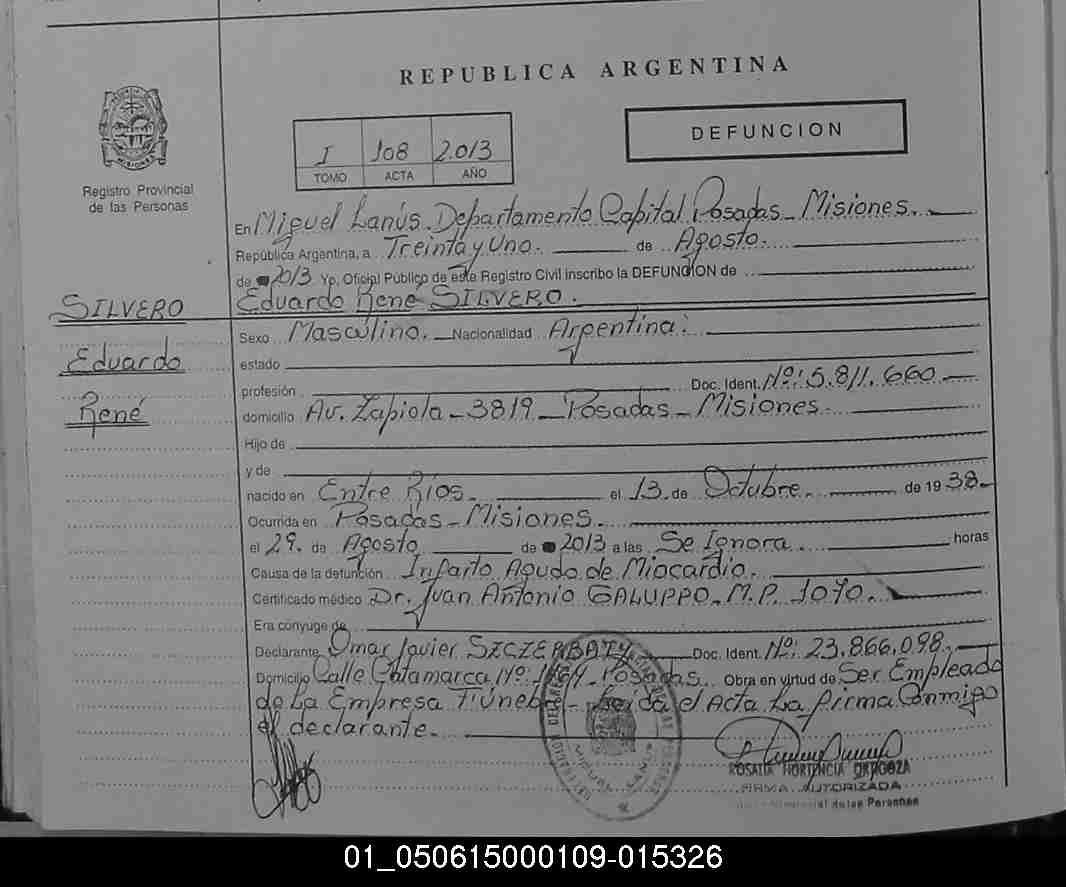 REPUBLICA ARGENTINA
DEFUNCION
I 108 2.013
TOMO ACTA AÑO
MISIONES
Registro Provincial
de las Personas
En Miguel Lanús. Departamento Capital Posadas - Misiones.
República Argentina, a Treinta y Uno. de Agosto.
de 2013 Yo, Oficial Público de este Registro Civil inscribo la DEFUNCION de
SILVERO
Eduardo
René
Eduardo René SILVERO.
Sexo Masculino. Nacionalidad Argentina.
estado
profesión Doc. Ident. Nº: 5.811.660
domicilio Av. Zapiola - 3819 - Posadas - Misiones
Hijo de
y de
nacido en Entre Ríos. el 13 de Octubre. de 1938.
Ocurrida en Posadas - Misiones.
el 29. de Agosto de 2013 a las Se Ignora horas
Causa de la defunción Infarto Agudo de Miocardio.
Certificado médico Dr. Juan Antonio GALUPPO. M.P. 1070.
Era cónyuge de
Declarante Omar Javier SZCZERBATY Doc. Ident. Nº: 23.866.098.
Domicilio Calle Catamarca Nº: Posadas. Obra en virtud de Ser Empleado
de La Empresa Fúnebre - Leída el Acta La firma Conmigo
el declarante.
MIGUEL LANUS
ROSALIA HORTENCIA ORTIGOZA
FIRMA AUTORIZADA
Provincial de las Personas
01_050615000109-015326